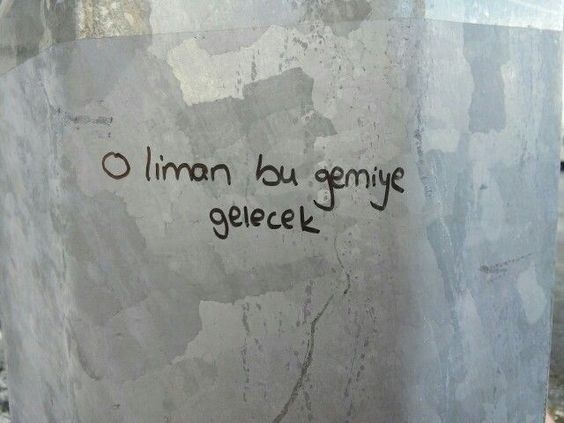 O liman bu gemiye
gelecek